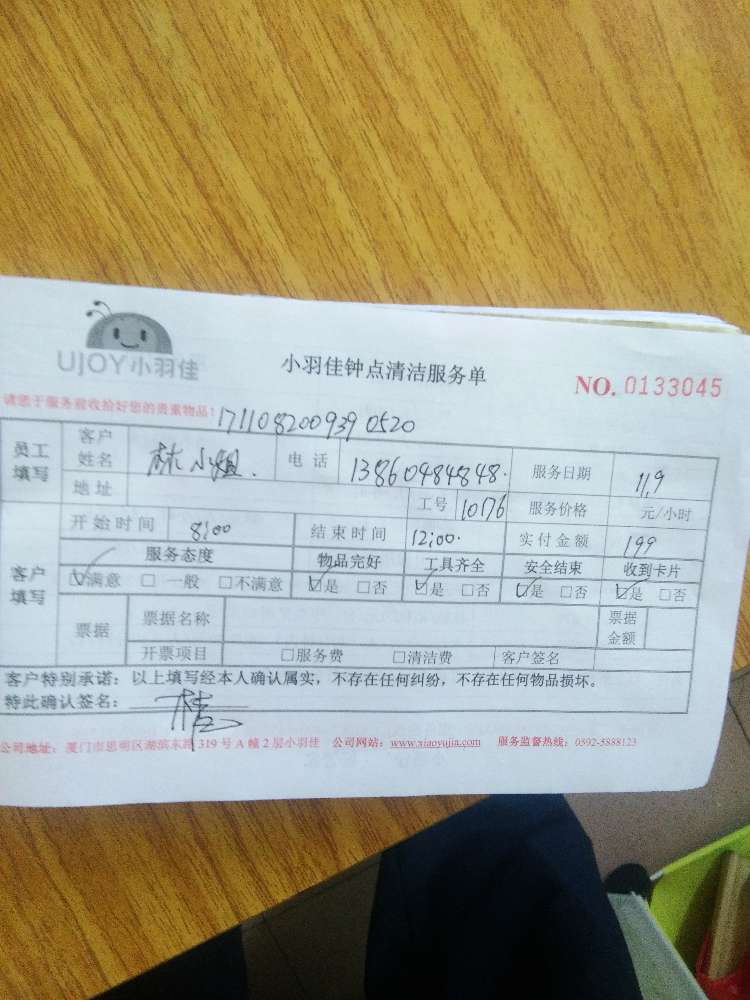 UJOY小羽佳
小羽佳钟点清洁服务单
NO. 0133045
请您于服务前收拾好您的贵重物品!
171108200939 0520
员工填写 客户姓名 林小姐. 电话 13860484848. 服务日期 11,9
地址 工号 10176 服务价格 元/小时
客户填写 开始时间 8:00 结束时间 12:00. 实付金额 199
服务态度 物品完好 工具齐全 安全结束 收到卡片
☑满意 □一般 □不满意 ☑是 □否 ☑是 □否 ☑是 □否 ☑是 □否
票据 票据名称 票据金额
开票项目 □服务费 □清洁费 客户签名
客户特别承诺：以上填写经本人确认属实，不存在任何纠纷，不存在任何物品损坏。
特此确认签名：
公司地址：厦门市思明区湖滨东路 319 号 A 幢 2 层小羽佳 公司网站：www.xiaoyujia.com 服务监督热线：0592-5888123